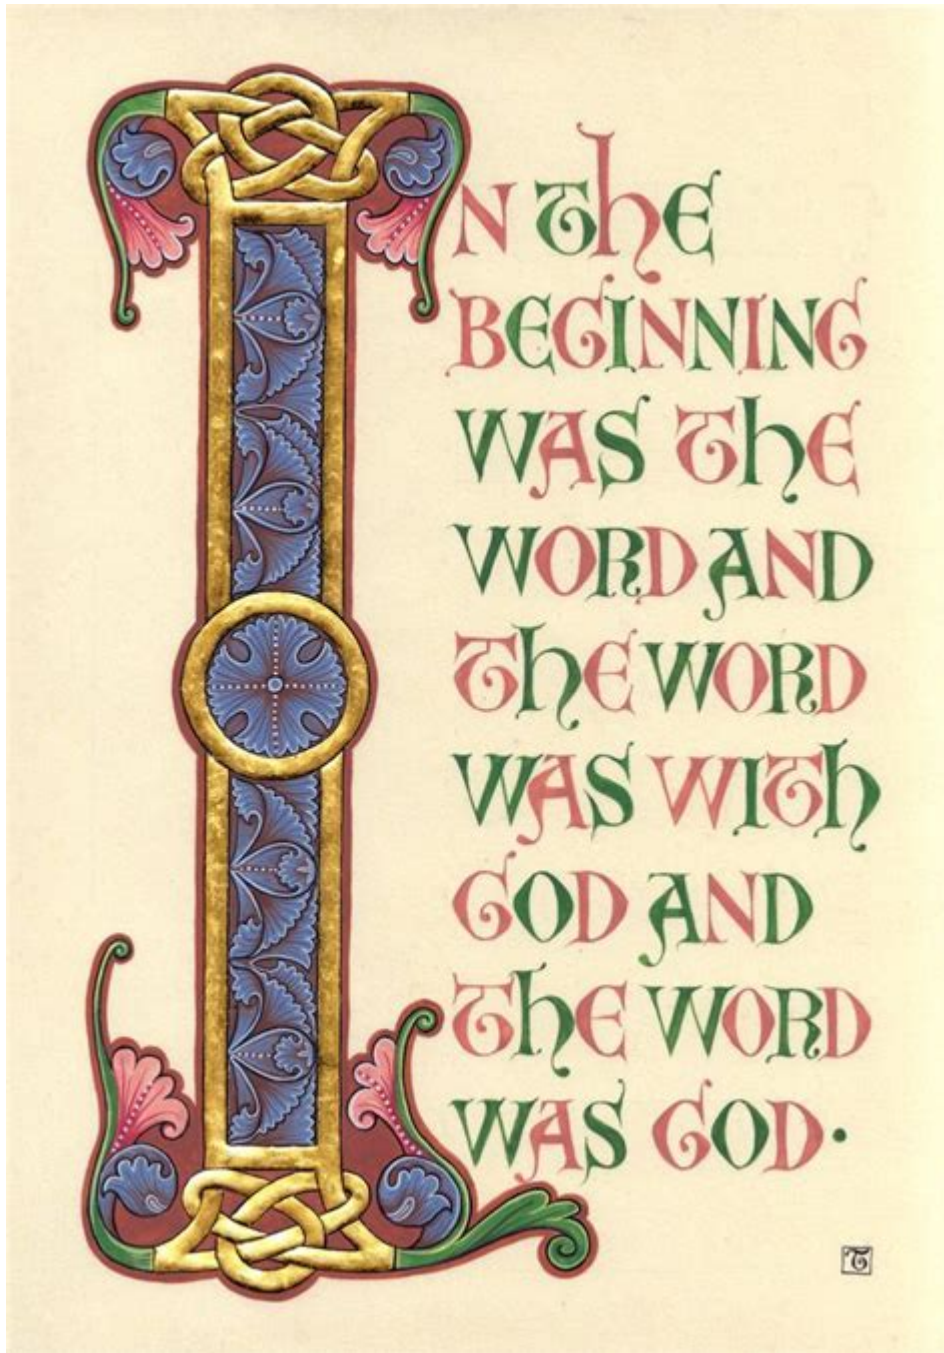 IN THE
BEGINNING
WAS THE
WORD AND
THE WORD
WAS WITH
GOD AND
THE WORD
WAS GOD·
T